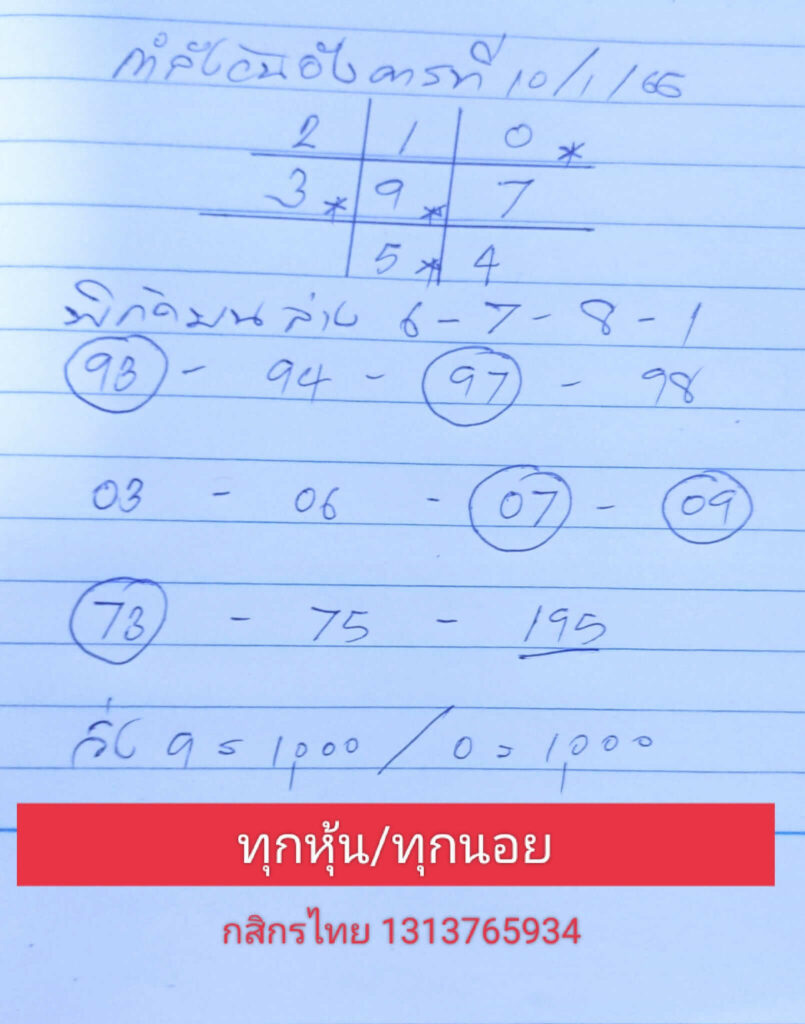 กำลังวันอังคารที่ 10/1/66
2 1 0 *
3 * 9 * 7
5 * 4
พิกัดบน ล่าง 6 - 7 - 8 - 1
93 - 94 - 97 - 98
03 - 06 - 07 - 09
73 - 75 - 195
วิ่ง 9 = 1,000 / 0 = 1,000
ทุกหุ้น/ทุกนอย
กสิกรไทย 1313765934